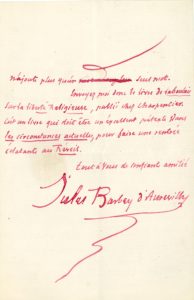 n'ajoute plus qu'un seul mot.
Envoyez moi donc le livre de
sur la liberté Religieuse, publié chez Charpentier.
C'est un livre qui doit être un excellent prétexte dans
les circonstances actuelles, pour faire une rentrée
éclatante au Réveil.
Tout à Vous de confiante amitié
Jules Barbey d'Aurevilly